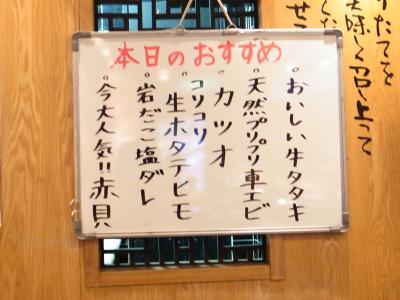 りたてを
美味しく召し上って
本日のおすすめ
。おいしい牛タタキ
。天然プリプリ車エビ
。カツオ
。コリコリ
生ホタテヒモ
。岩だこ塩ダレ
。今大人気!!赤貝